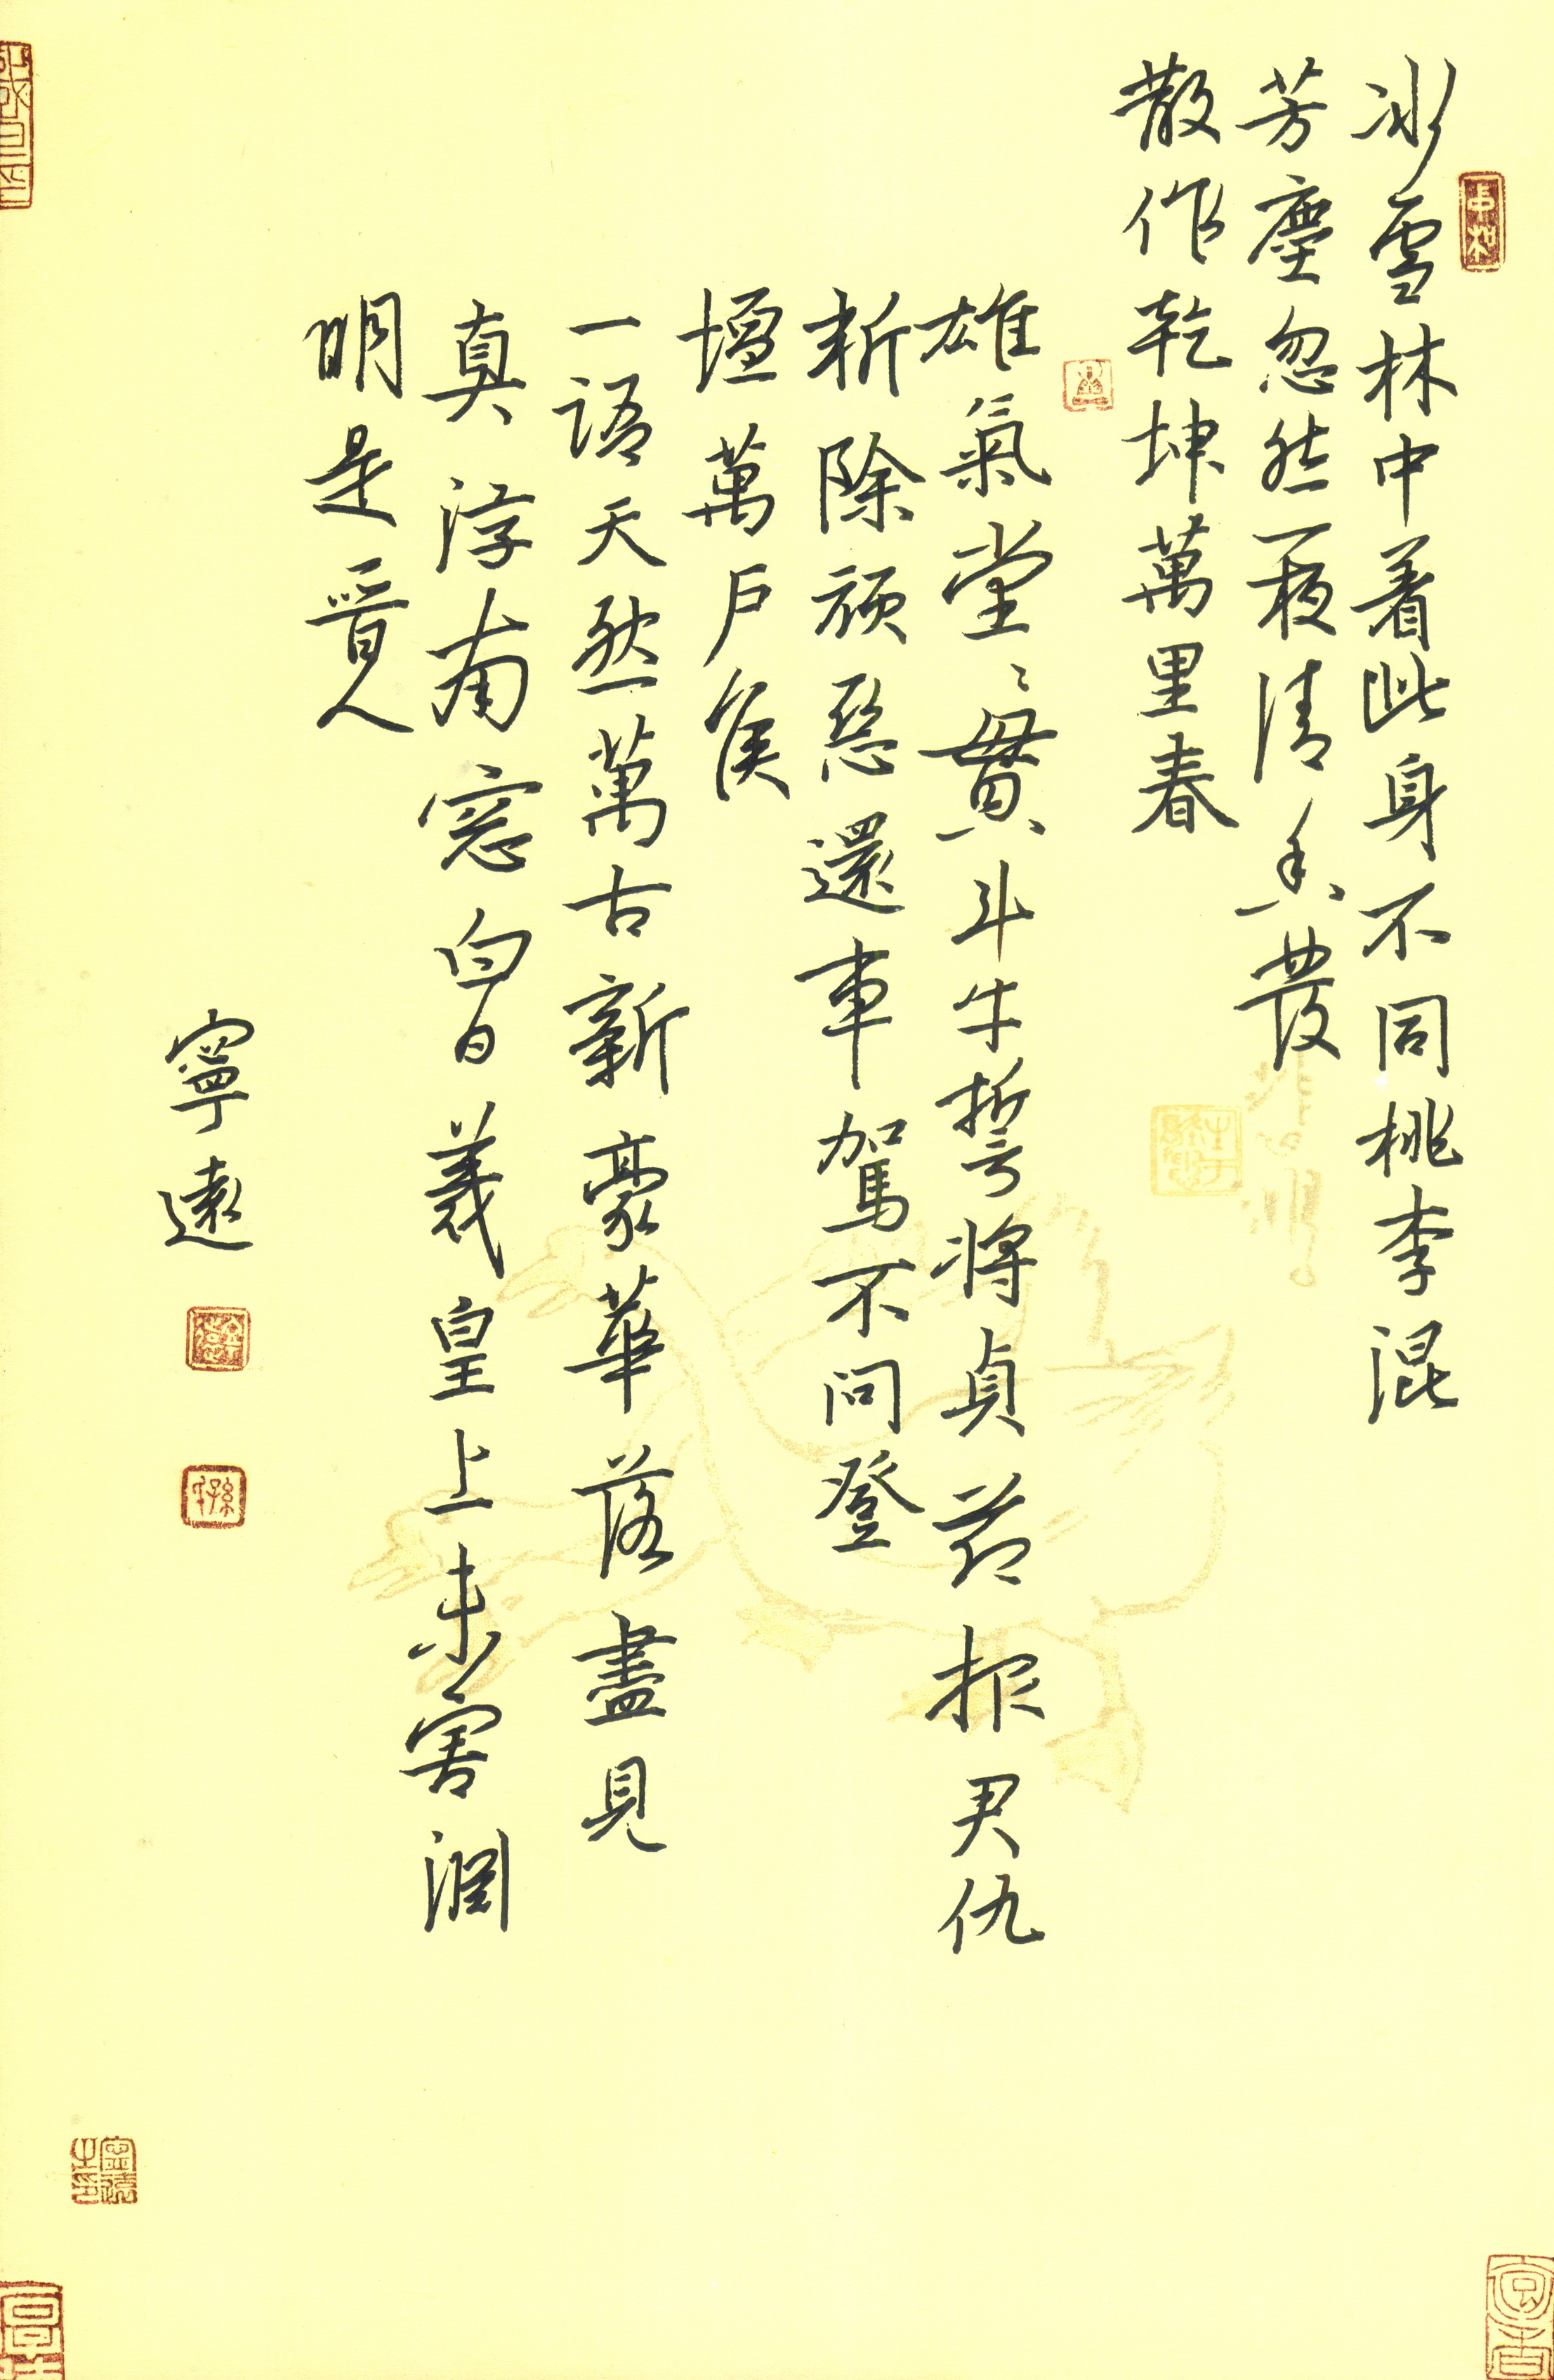 冰雪林中着此身不同桃李混
芳塵忽然一夜清香發
散作乾坤萬里春
雄氣堂〻貫斗牛誓將貞節报君仇
斬除頑惡還車駕不問登
壇萬戶侯
一語天然萬古新豪華落盡見
真淳南窓白日羲皇上未害淵
明是晉人
寧遠
中和
孫